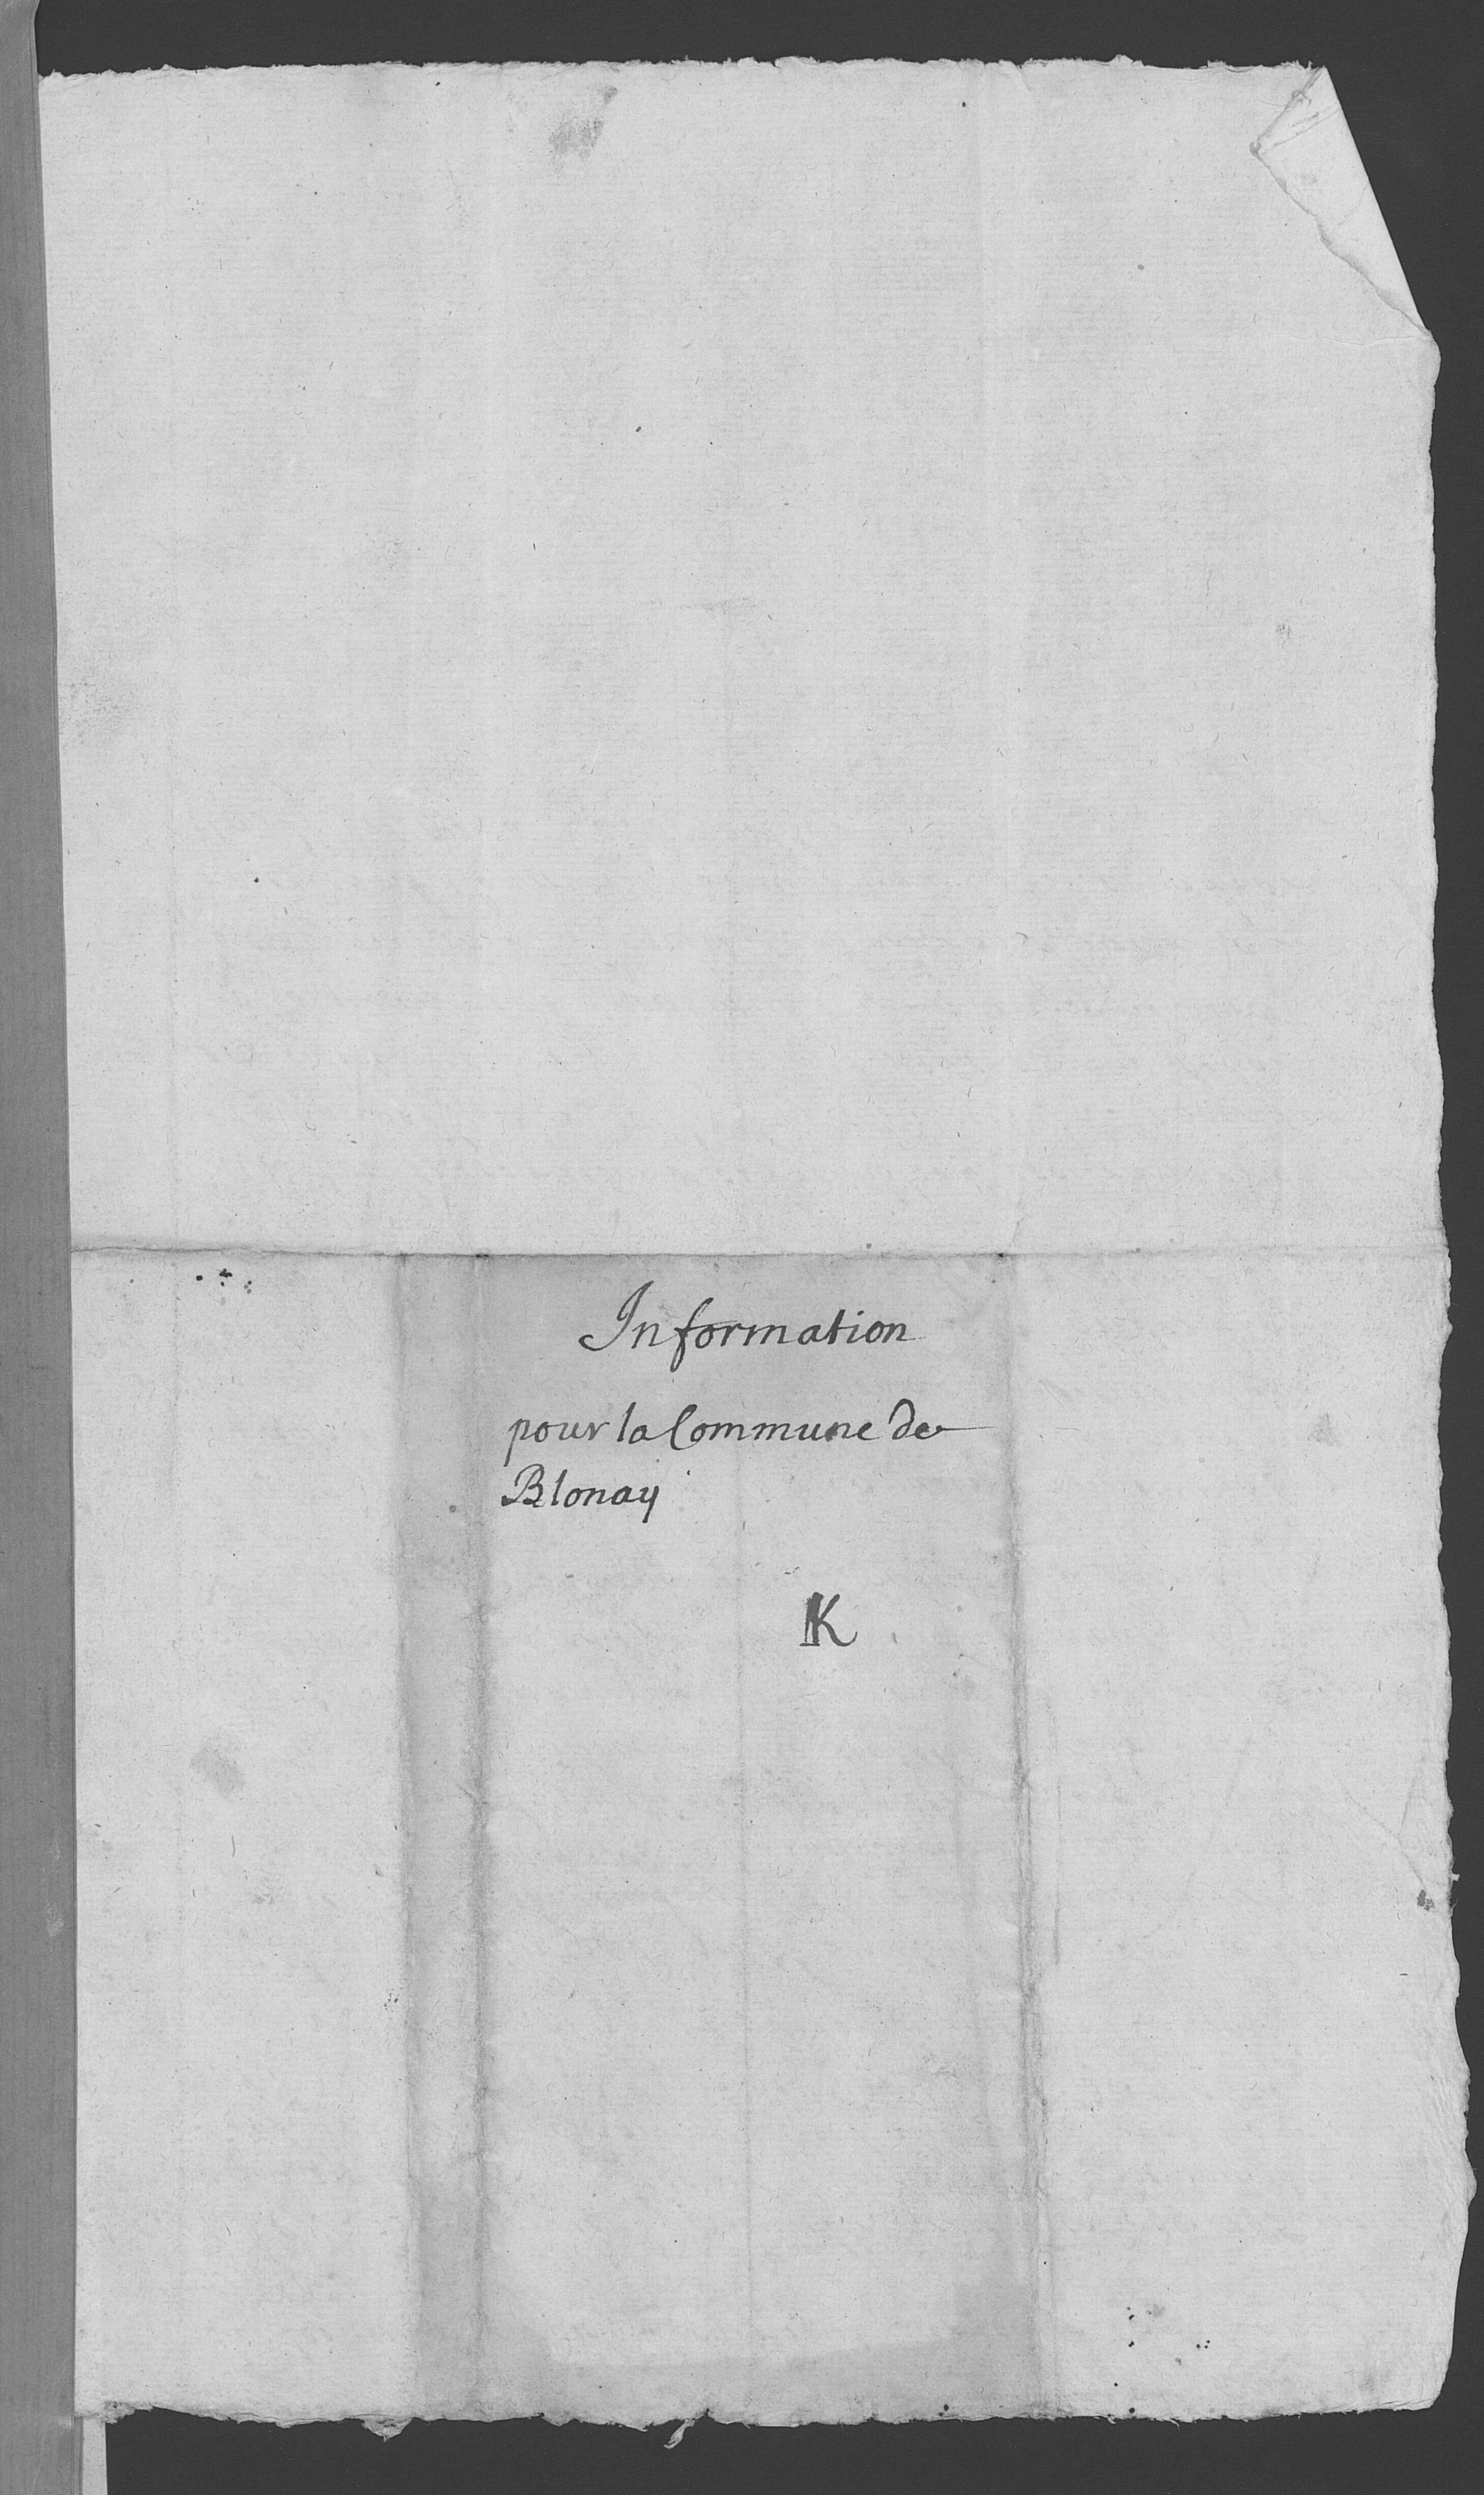 Information
pour la Commune de
Blonay
K